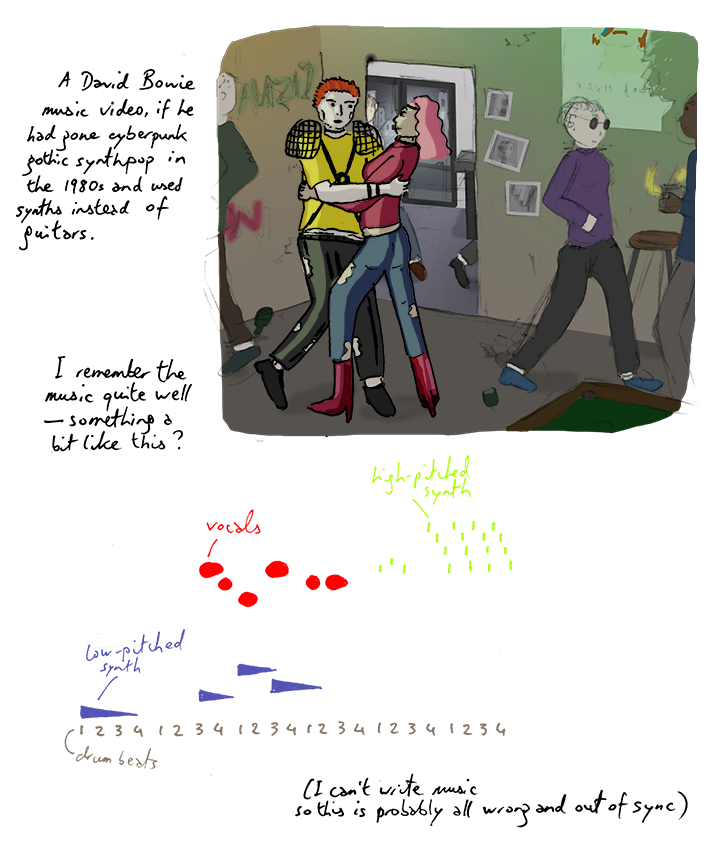 A David Bowie
music video, if he
had gone cyberpunk
gothic synthpop in
the 1980s and used
synths instead of
guitars.
I remember the
music quite well
— something a
bit like this?
high-pitched
synth
vocals
low-pitched
synth
1 2 3 4 1 2 3 4 1 2 3 4 1 2 3 4 1 2 3 4 1 2 3 4
drum beats
(I can't write music
so this is probably all wrong and out of sync)